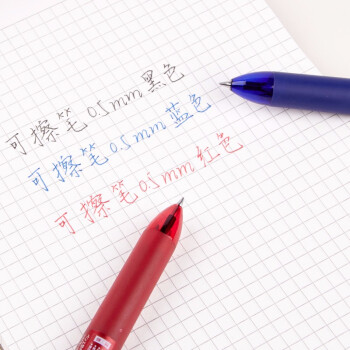 可擦笔0.5mm黑色
可擦笔0.5mm蓝色
可擦笔0.5mm红色